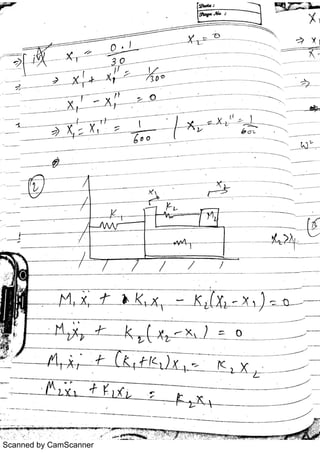 Date :
Page No. :
X₁ = 0.1 / 30
X₂ = 0
⇒ X₁' + X₁'' = 1/300
X₁' - X₁'' = 0
⇒ X₁' = X₁'' = 1/600 / X₂' = X₂'' = 1/600
②
x₁ x₂
K₁ K₂ M₂
m₁
x₂>x₁
M₁ẍ₁ + K₁x₁ - K₂(x₂-x₁) = 0
M₂ẍ₂ + k₂(x₂-x₁) = 0
M₁ẍ₁ + (K₁+K₂)x₁ = K₂x₂
M₂ẍ₂ + K₂x₂ = K₂x₁
Scanned by CamScanner